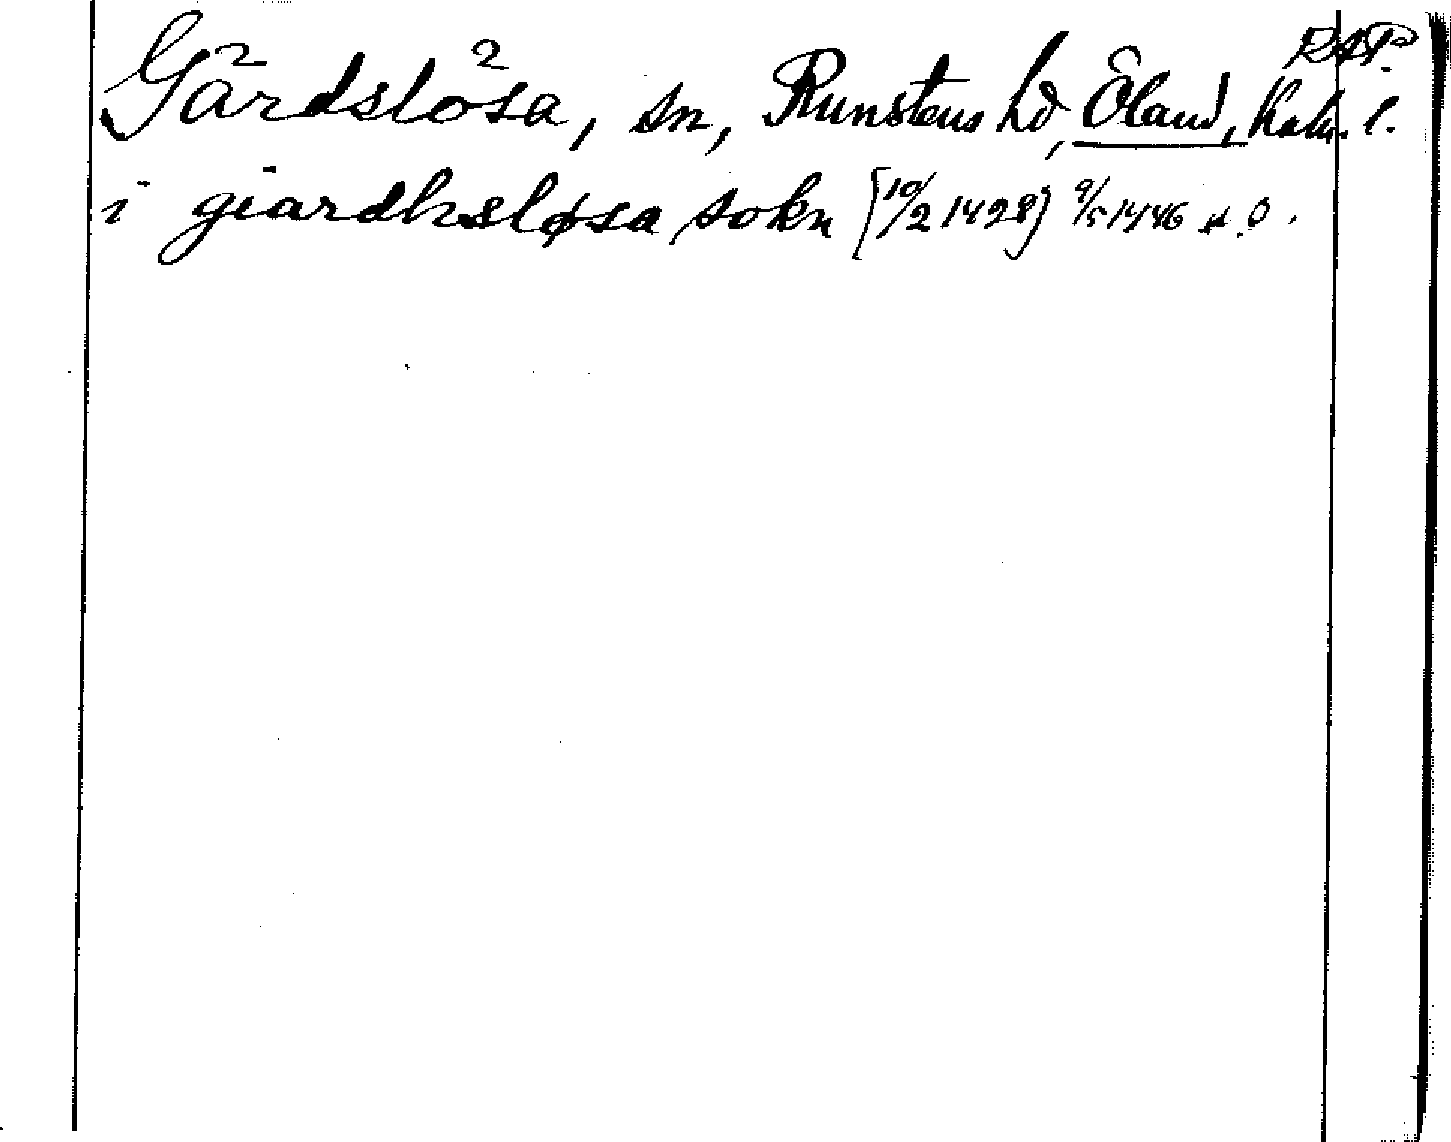 RAP.
Gärdslösa, sn, Runstens hd, Öland, Kalm. l.
i giardhsløsa sokn [10/2 1428] 9/5 1446 s. O.